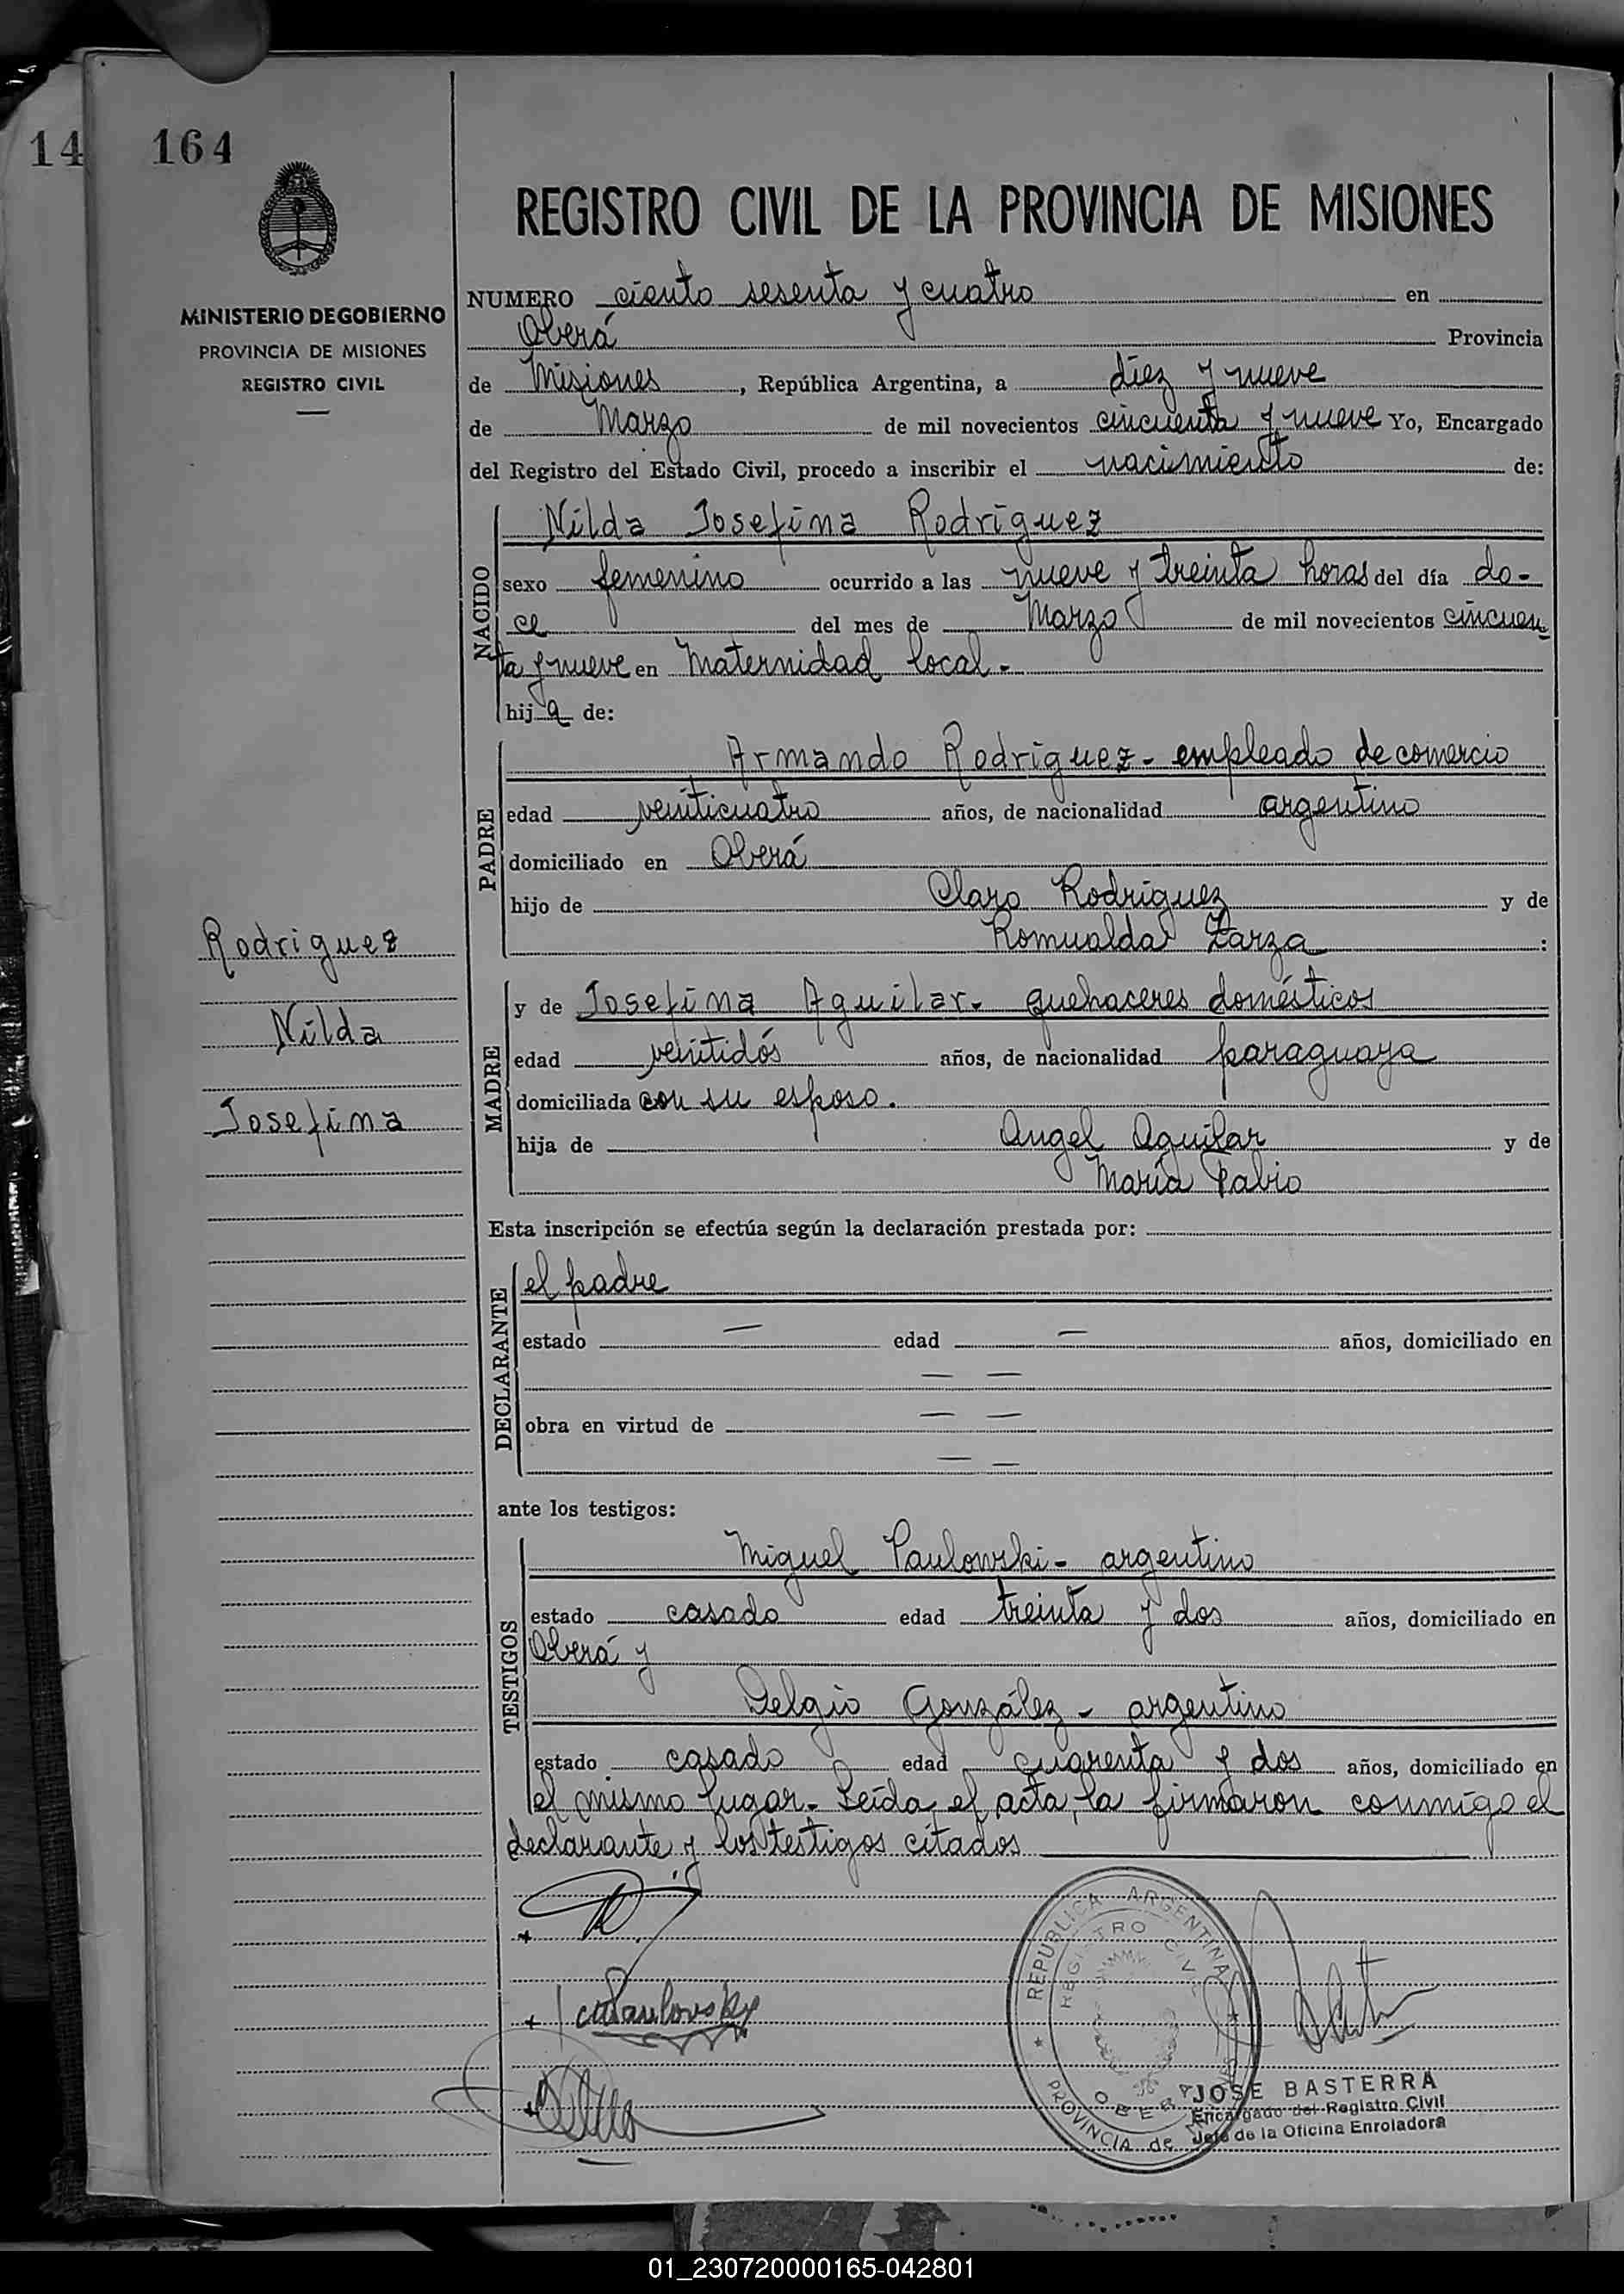 14
164
MINISTERIO DE GOBIERNO
PROVINCIA DE MISIONES
REGISTRO CIVIL
REGISTRO CIVIL DE LA PROVINCIA DE MISIONES
NUMERO ciento sesenta y cuatro en
Oberá Provincia
de Misiones, República Argentina, a diez y nueve
de Marzo de mil novecientos cincuenta y nueve Yo, Encargado
del Registro del Estado Civil, procedo a inscribir el nacimiento de:
NACIDO
Nilda Josefina Rodriguez
sexo femenino ocurrido a las nueve y treinta horas del día do-
ce del mes de Marzo de mil novecientos cincuen
ta y nueve en Maternidad local.-
hija de:
PADRE
Armando Rodriguez- empleado de comercio
edad veinticuatro años, de nacionalidad argentino
domiciliado en Oberá
hijo de Claro Rodriguez y de
Romualda Zarza :
MADRE
y de Josefina Aguilar- quehaceres domésticos
edad veintidós años, de nacionalidad paraguaya
domiciliada con su esposo.
hija de Angel Aguilar y de
María Pabio
Rodriguez
Nilda
Josefina
Esta inscripción se efectúa según la declaración prestada por:
DECLARANTE
el padre
estado — edad — años, domiciliado en
— —
obra en virtud de — —
— —
ante los testigos:
TESTIGOS
Miguel Paulowski- argentino
estado casado edad treinta y dos años, domiciliado en
Oberá y
Delgio González - argentino
estado casado edad cuarenta y dos años, domiciliado en
el mismo lugar.- Leída el acta, la firmaron conmigo el
declarante y los testigos citados
REPUBLICA ARGENTINA
REGISTRO CIVIL
OBERA
PROVINCIA de
JOSE BASTERRA
Encargado del Registro Civil
Jefe de la Oficina Enroladora
01_230720000165-042801